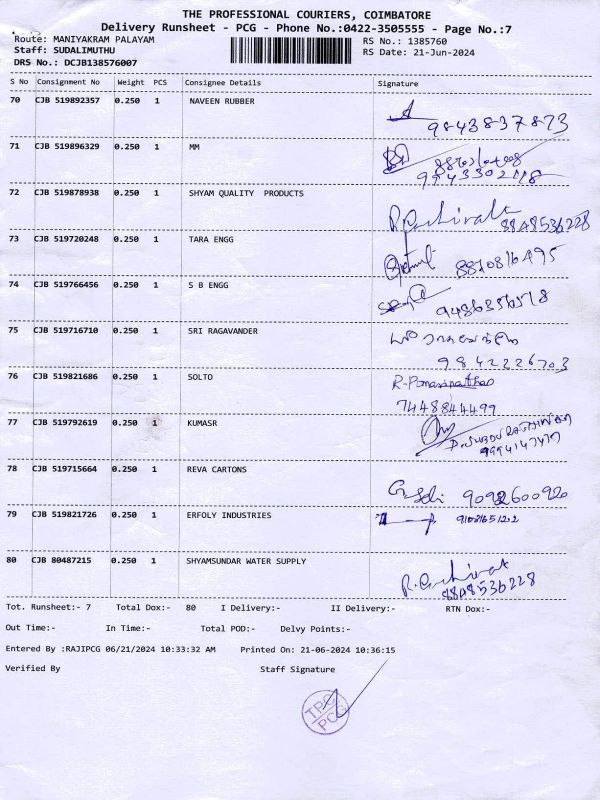 THE PROFESSIONAL COURIERS, COIMBATORE
Delivery Runsheet - PCG - Phone No.:0422-3505555 - Page No.:7
Route: MANIYAKRAM PALAYAM RS No.: 1385760
Staff: SUDALIMUTHU RS Date: 21-Jun-2024
DRS No.: DCJB138576007
S No Consignment No Weight PCS Consignee Details Signature
70 CJB 519892357 0.250 1 NAVEEN RUBBER
9843837873
71 CJB 519896329 0.250 1 MM
9943302118
72 CJB 519878938 0.250 1 SHYAM QUALITY PRODUCTS
8848536228
73 CJB 519720248 0.250 1 TARA ENGG
8870816495
74 CJB 519766456 0.250 1 S B ENGG
75 CJB 519716710 0.250 1 SRI RAGAVANDER
9842226703
76 CJB 519821686 0.250 1 SOLTO
7448844499
77 CJB 519792619 0.250 1 KUMASR
78 CJB 519715664 0.250 1 REVA CARTONS
9092600920
79 CJB 519821726 0.250 1 ERFOLY INDUSTRIES
80 CJB 80487215 0.250 1 SHYAMSUNDAR WATER SUPPLY
8848536228
Tot. Runsheet:- 7 Total Dox:- 80 I Delivery:- II Delivery:- RTN Dox:-
Out Time:- In Time:- Total POD:- Delvy Points:-
Entered By :RAJIPCG 06/21/2024 10:33:32 AM Printed On: 21-06-2024 10:36:15
Verified By Staff Signature
TPC
PCG